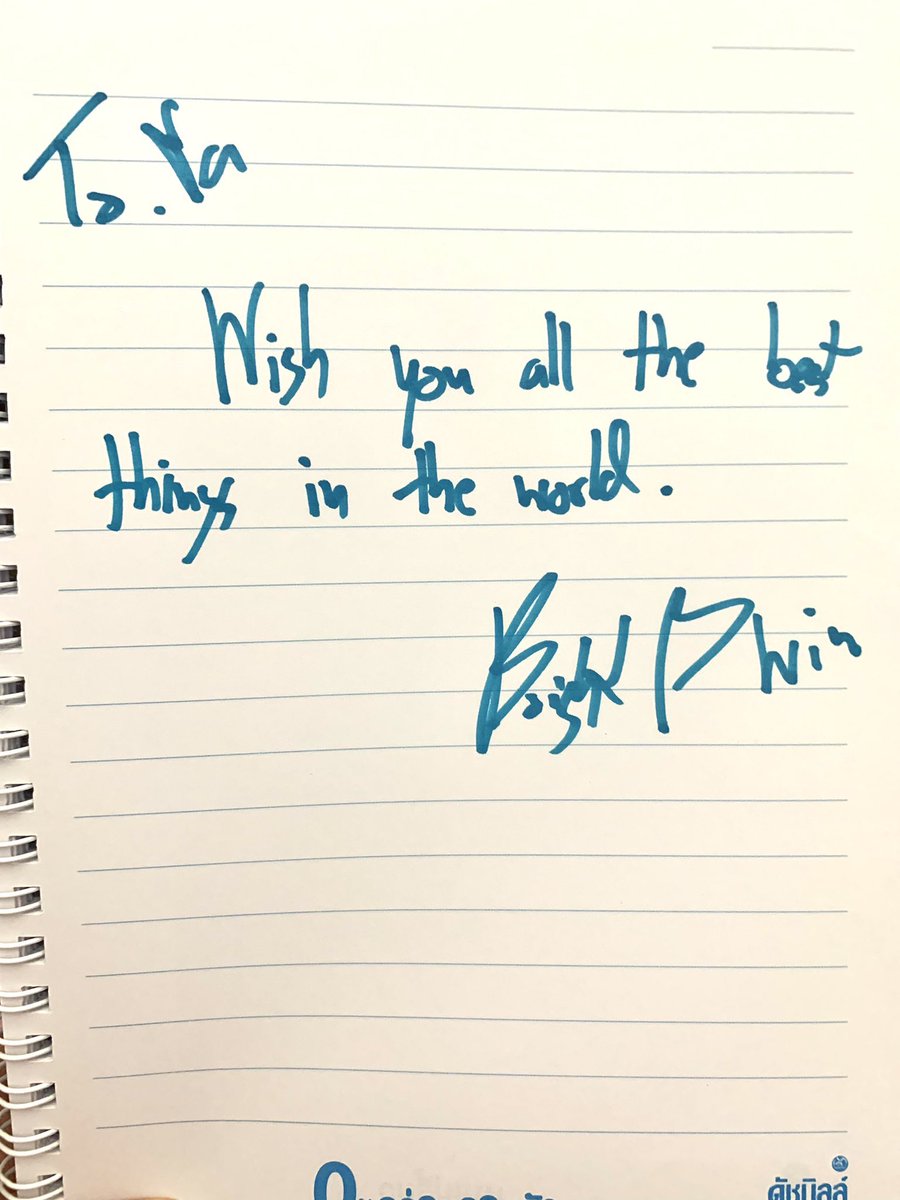 To. Ya
Wish you all the best
things in the world.
Bright Win
ดัชมิลล์